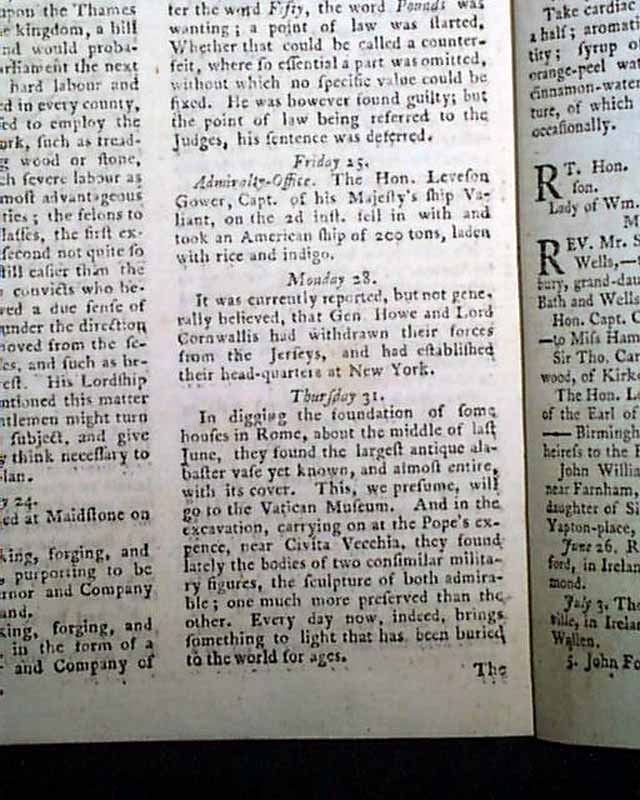 upon the Thames
kingdom, a bill
nd would proba-
arliament the next
hard labour and
ed in every county,
ed to employ the
ork, such as tread-
g wood or ſtone,
ch ſevere labour as
moſt advantageous
ties; the felons to
laſſes, the firſt ex-
ſecond not quite ſo
ſtill eaſier than the
convicts who be-
ved a due ſenſe of
under the direction
moved from the ſe-
es, and ſuch as be-
reſt. His Lordſhip
ntioned this matter
ntlemen might turn
ſubject, and give
y think neceſſary to
lan.
y 24.
ed at Maidſtone on
king, forging, and
, purporting to be
ernor and Company
and.
king, forging, and
in the form of a
and Company of
ter the word Fifty, the word Pounds was
wanting; a point of law was ſtarted,
Whether that could be called a counter-
feit, where ſo eſſential a part was omitted,
without which no ſpecific value could be
fixed. He was however found guilty; but
the point of law being referred to the
Judges, his ſentence was deferred.
Friday 25.
Admiralty-Office. The Hon. Leveſon
Gower, Capt. of his Majeſty's ſhip Va-
liant, on the 2d inſt. fell in with and
took an American ſhip of 200 tons, laden
with rice and indigo.
Monday 28.
It was currently reported, but not gene-
rally believed, that Gen. Howe and Lord
Cornwallis had withdrawn their forces
from the Jerſeys, and had eſtabliſhed
their head-quarters at New York.
Thurſday 31.
In digging the foundation of ſome
houſes in Rome, about the middle of laſt
June, they found the largeſt antique ala-
baſter vaſe yet known, and almoſt entire,
with its cover. This, we preſume, will
go to the Vatican Muſeum. And in the
excavation, carrying on at the Pope's ex-
pence, near Civita Vecchia, they found
lately the bodies of two conſimilar milita-
ry figures, the ſculpture of both admira-
ble; one much more preſerved than the
other. Every day now, indeed, brings
ſomething to light that has been buried
to the world for ages.
The
Take cardiac
a half; aromat
tity; ſyrup o
orange-peel wat
cinnamon-water
ture, of which
occaſionally.
RT. Hon.
ſon.
Lady of Wm.
M
REV. Mr. S
Wells,—t
bury, grand-dau
Bath and Wells
Hon. Capt. C
—to Miſs Ham
Sir Tho. Car
wood, of Kirke
The Hon. L
of the Earl of
— Birmingh
heireſs to the E
John Willia
near Farnham,
daughter of Si
Yapton-place,
June 26. R
ford, in Irelan
mond.
July 3. The
ville, in Irelan
Wallen.
5. John Fo